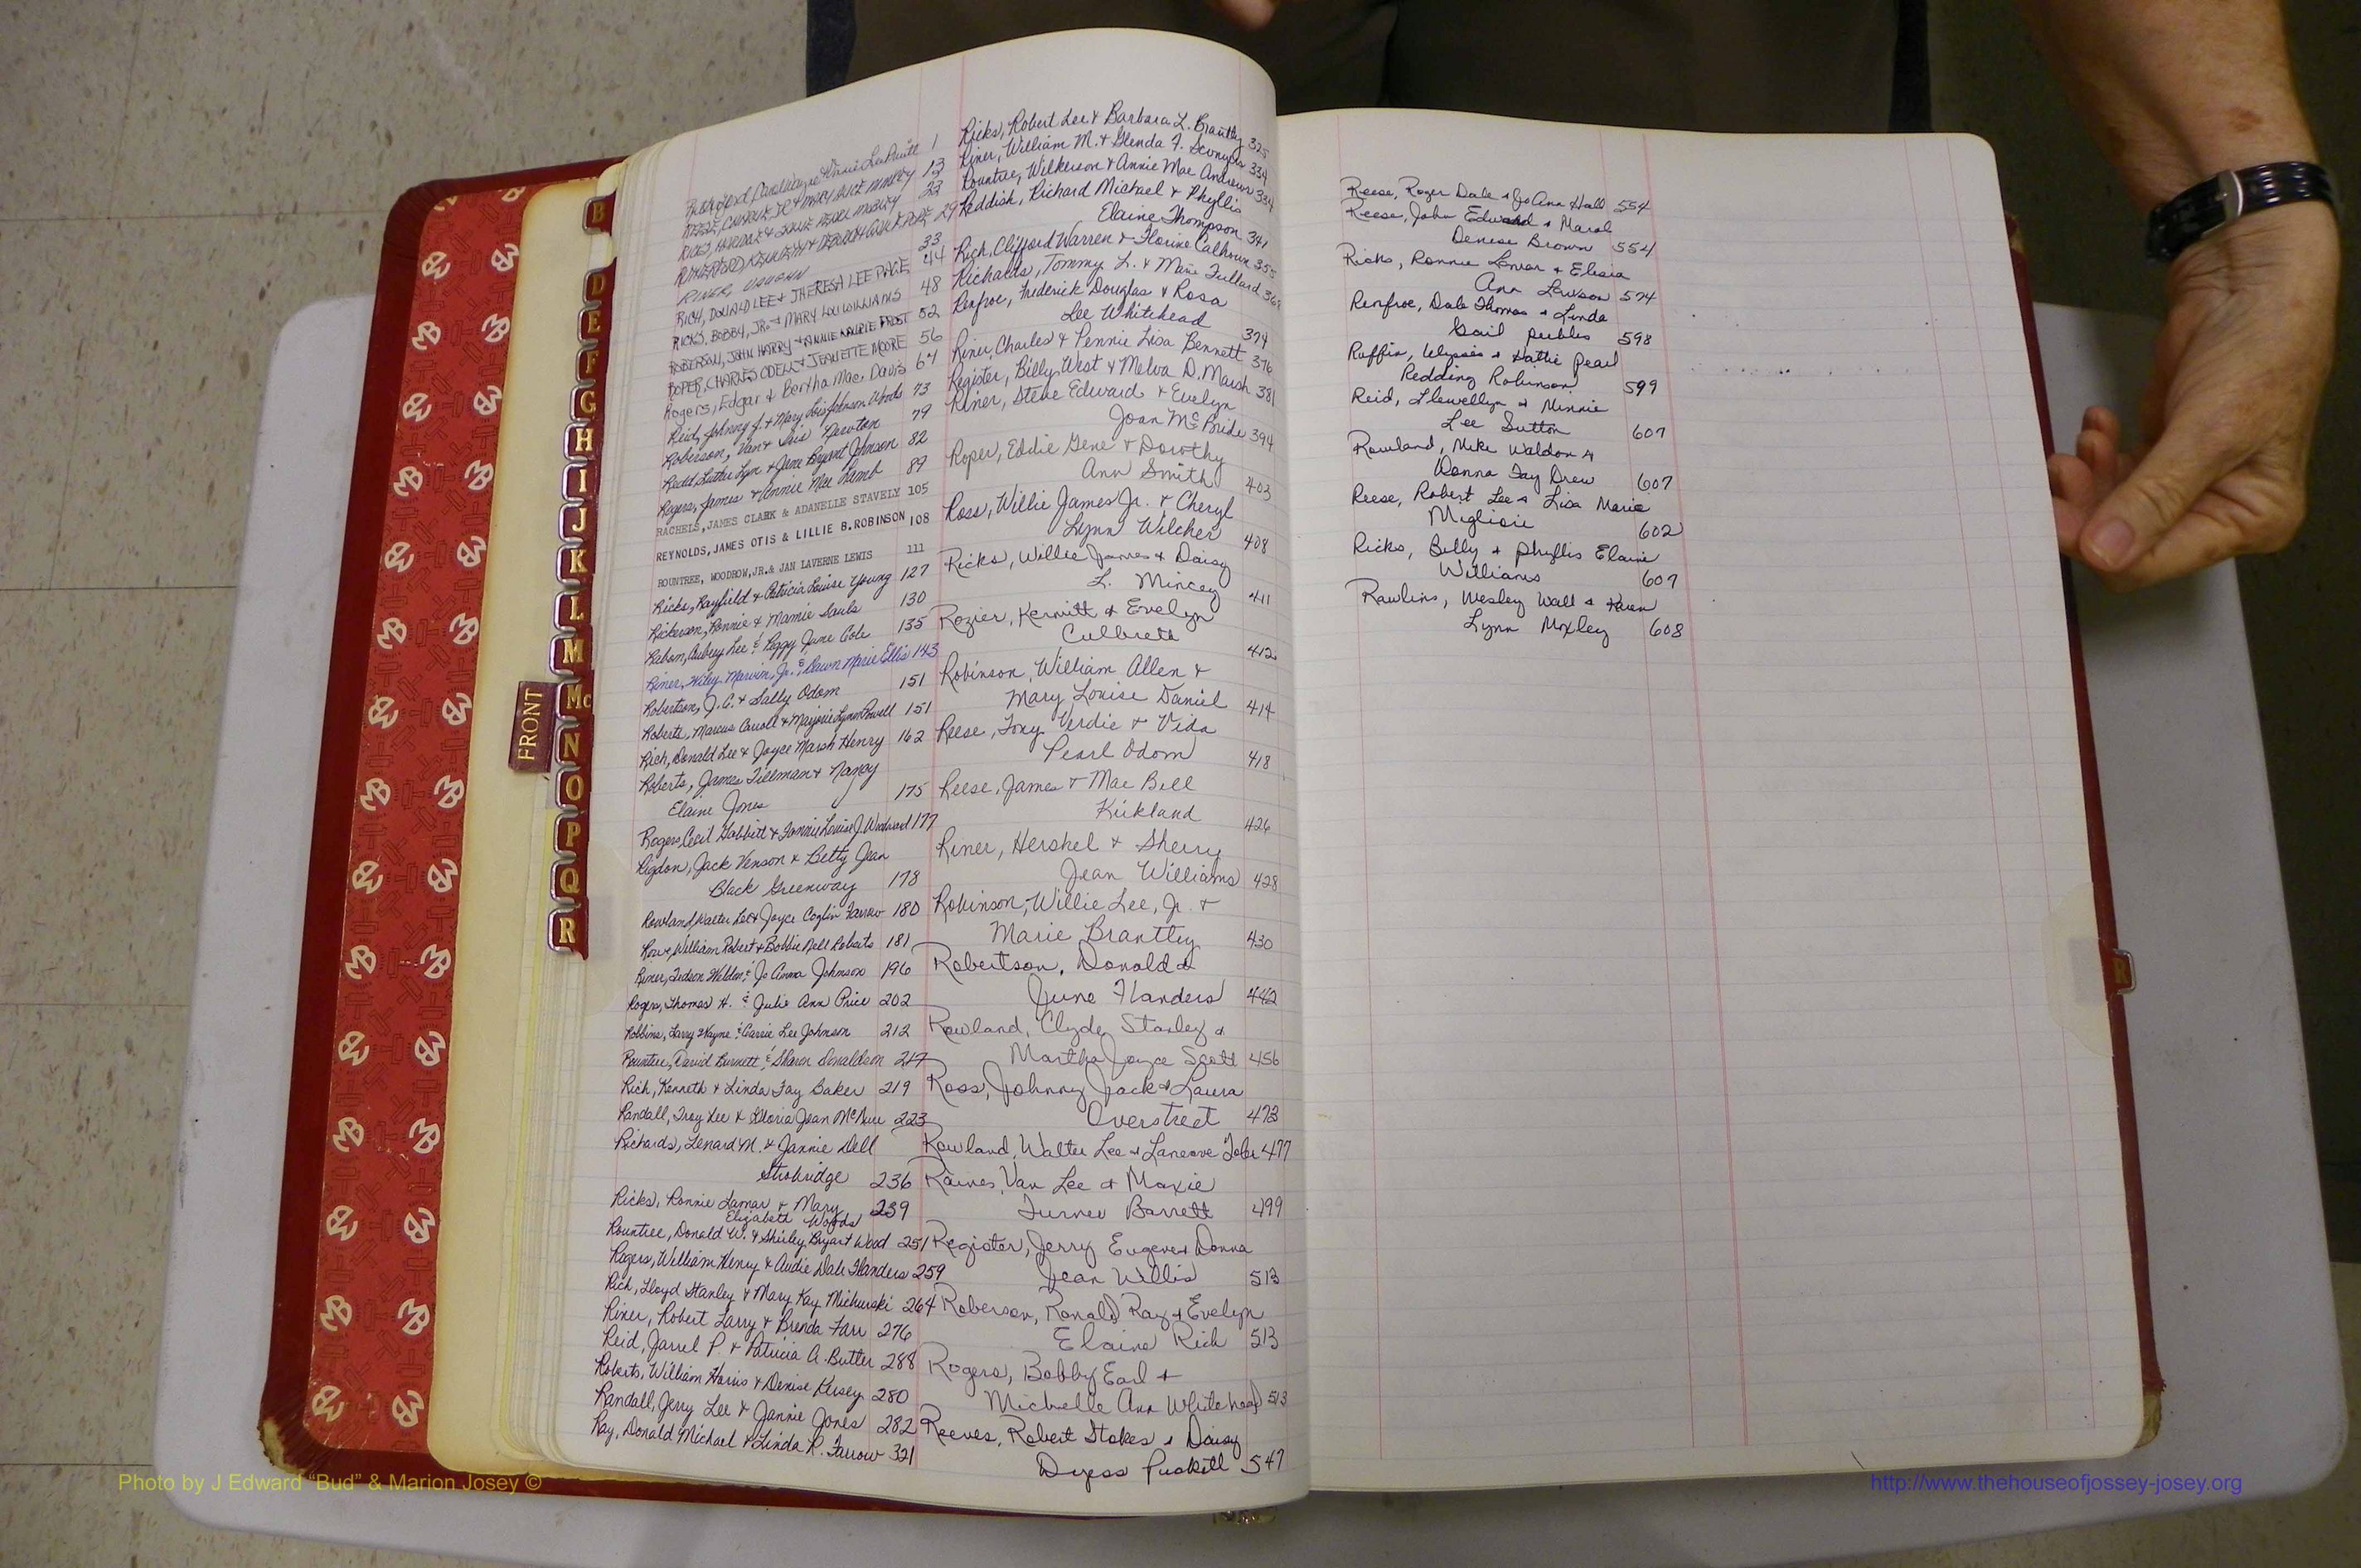 B
D
E
F
G
H
I
J
K
L
M
Mc
N
O
P
Q
R
FRONT
1
13
23
29
RINER, VAUGHN 33
RICH, DONALD LEE & THERESA LEE PAGE 44
RICKS, BOBBY, JR. & MARY LOU WILLIAMS 48
ROBERSON, JOHN HARRY & ANNIE FROST 52
ROPER, CHARLES ODELL & JEANETTE MOORE 56
Rogers, Edgar & Bertha Mae Davis 67
Reid, Johnny J. & Mary Lois Johnson Woods 73
Roberson, Van & Lois Newton 79
Redd, Luther Lynn & Jane Bryant Johnson 82
Rogers, James & Annie Mae Lamb 89
RACHELS, JAMES CLARK & ADANELLE STAVELY 105
REYNOLDS, JAMES OTIS & LILLIE B. ROBINSON 108
ROUNTREE, WOODROW, JR. & JAN LAVERNE LEWIS 111
Ricks, Rayfield & Patricia Louise Young 127
Rickerson, Ronnie & Mamie Sauls 130
Rabom, Aubrey Lee & Peggy June Cole 135
Riner, Wiley Marvin, Jr. & Dawn Marie Ellis 143
Robertson, J.C. & Sally Odom 151
Roberts, Marcus Carroll & Marjorie Lynn Powell 151
Rich, Donald Lee & Joyce Marsh Henry 162
Roberts, James Tillman & Nancy
Elaine Jones 175
Rogers, Cecil & Fannie Louise J. Woodward 177
Rigdon, Jack Venson & Betty Jean
Black Greenway 178
Rowland, Walter Lee & Joyce Coglin Farrow 180
Row, William Robert & Bobbie Nell Roberts 181
Riner, Judson Weldon & Jo Anna Johnson 196
Rogers, Thomas H. & Julie Ann Price 202
Robbins, Larry Wayne & Carrie Lee Johnson 212
Rountree, David Burnett & Sharon Donaldson 217
Rich, Kenneth & Linda Fay Baker 219
Randall, Troy Lee & Gloria Jean McNure 223
Richards, Lenard M. & Jannie Dell
Strobridge 236
Ricks, Ronnie Lamar & Mary
Elizabeth Woods 239
Rountree, Donald W. & Shirley Bryant Wood 251
Rogers, William Henry & Audie Dale Flanders 259
Rich, Lloyd Stanley & Mary Kay Michurski 264
Riner, Robert Larry & Brenda Farr 276
Reid, Jarrel P. & Patricia A. Butler 288
Roberts, William Harris & Denise Kersey 280
Randall, Jerry Lee & Jannie Jones 282
Ray, Donald Michael & Linda R. Farrow 321
Ricks, Robert Lee & Barbara L. Brantley 325
Riner, William M. & Glenda F. Scouyers 334
Rountree, Wilkerson & Annie Mae Andrews 334
Reddish, Richard Michael & Phyllis
Elaine Thompson 341
Rich, Clifford Warren & Florine Calhoun 355
Richards, Tommy L. & Marie Fullard
Renfroe, Frederick Douglas & Rosa
Lee Whitehead 374
Riner, Charles & Pennie Lisa Bennett 376
Register, Billy West & Melva D. Marsh 381
Riner, Steve Edward & Evelyn
Joan McBride 394
Roper, Eddie Gene & Dorothy
Ann Smith 403
Ross, Willie James Jr. & Cheryl
Lynn Wilcher 408
Ricks, Willie James & Daisy
L. Mincey 411
Rozier, Kermitt & Evelyn
Culbreth 412
Robinson, William Allen &
Mary Louise Daniel 414
Reese, Tony Verdie & Vida
Pearl Odom 418
Reese, James & Mae Bell
Kirkland 426
Riner, Hershel & Sherry
Jean Williams 428
Robinson, Willie Lee, Jr. &
Marie Brantley 430
Robertson, Donald &
June Flanders 442
Rowland, Clyde Stanley &
Martha Joyce Scott 456
Ross, Johnny Jack & Laura
Overstreet 473
Rowland, Walter Lee & 477
Raines, Van Lee & Maxie
Turner Barrett 499
Register, Jerry Eugene & Donna
Jean Willis 513
Roberson, Ronald Ray & Evelyn
Elaine Rich 513
Rogers, Bobby Earl &
Michelle Ann Whitehead 513
Reeves, Robert Stokes & Daisy
Dyess Puckett 547
Reese, Roger Dale & Jo Ann Hall 554
Reese, John Edward & Maral
Denise Brown 554
Ricks, Ronnie Lamar & Elisia
Ann Lawson 574
Renfroe, Dale Thomas & Linda
Gail Peebles 598
Ruffin, Ulysses & Hattie Pearl
Redding Robinson 599
Reid, Llewellyn & Minnie
Lee Sutton 607
Rowland, Mike Waldon &
Donna Fay Drew 607
Reese, Robert Lee & Lisa Marie
Migliorie 602
Ricks, Billy & Phyllis Elaine
Williams 607
Rawlins, Wesley Wall & Karen
Lynn Moxley 608
R
Photo by J Edward “Bud” & Marion Josey ©
http://www.thehouseofjossey-josey.org